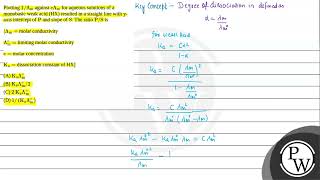 Plotting 1/Λm against cΛm for aqueous solutions of a
monobasic weak acid (HX) resulted in a straight line with y-
axis intercept of P and slope of S. The ratio P/S is
[Λm = molar conductivity
Λ°m = limiting molar conductivity
c = molar concentration
Ka = dissociation constant of HX]
(A) KaΛ°m
(B) KaΛ°m/2
(C) 2 KaΛ°m
(D) 1/(KaΛ°m)
Key Concept - Degree of dissociation is defined as
α = Λm / Λm°
for weak acid
Ka = Cα² / 1-α
Ka = C (Λm/Λm°)² / 1 - Λm/Λm°
Ka = C Λm² / Λm° (Λm° - Λm)
Ka Λm°² - Ka Λm° Λm = C Λm²
Ka Λm°² / Λm - 1
PW